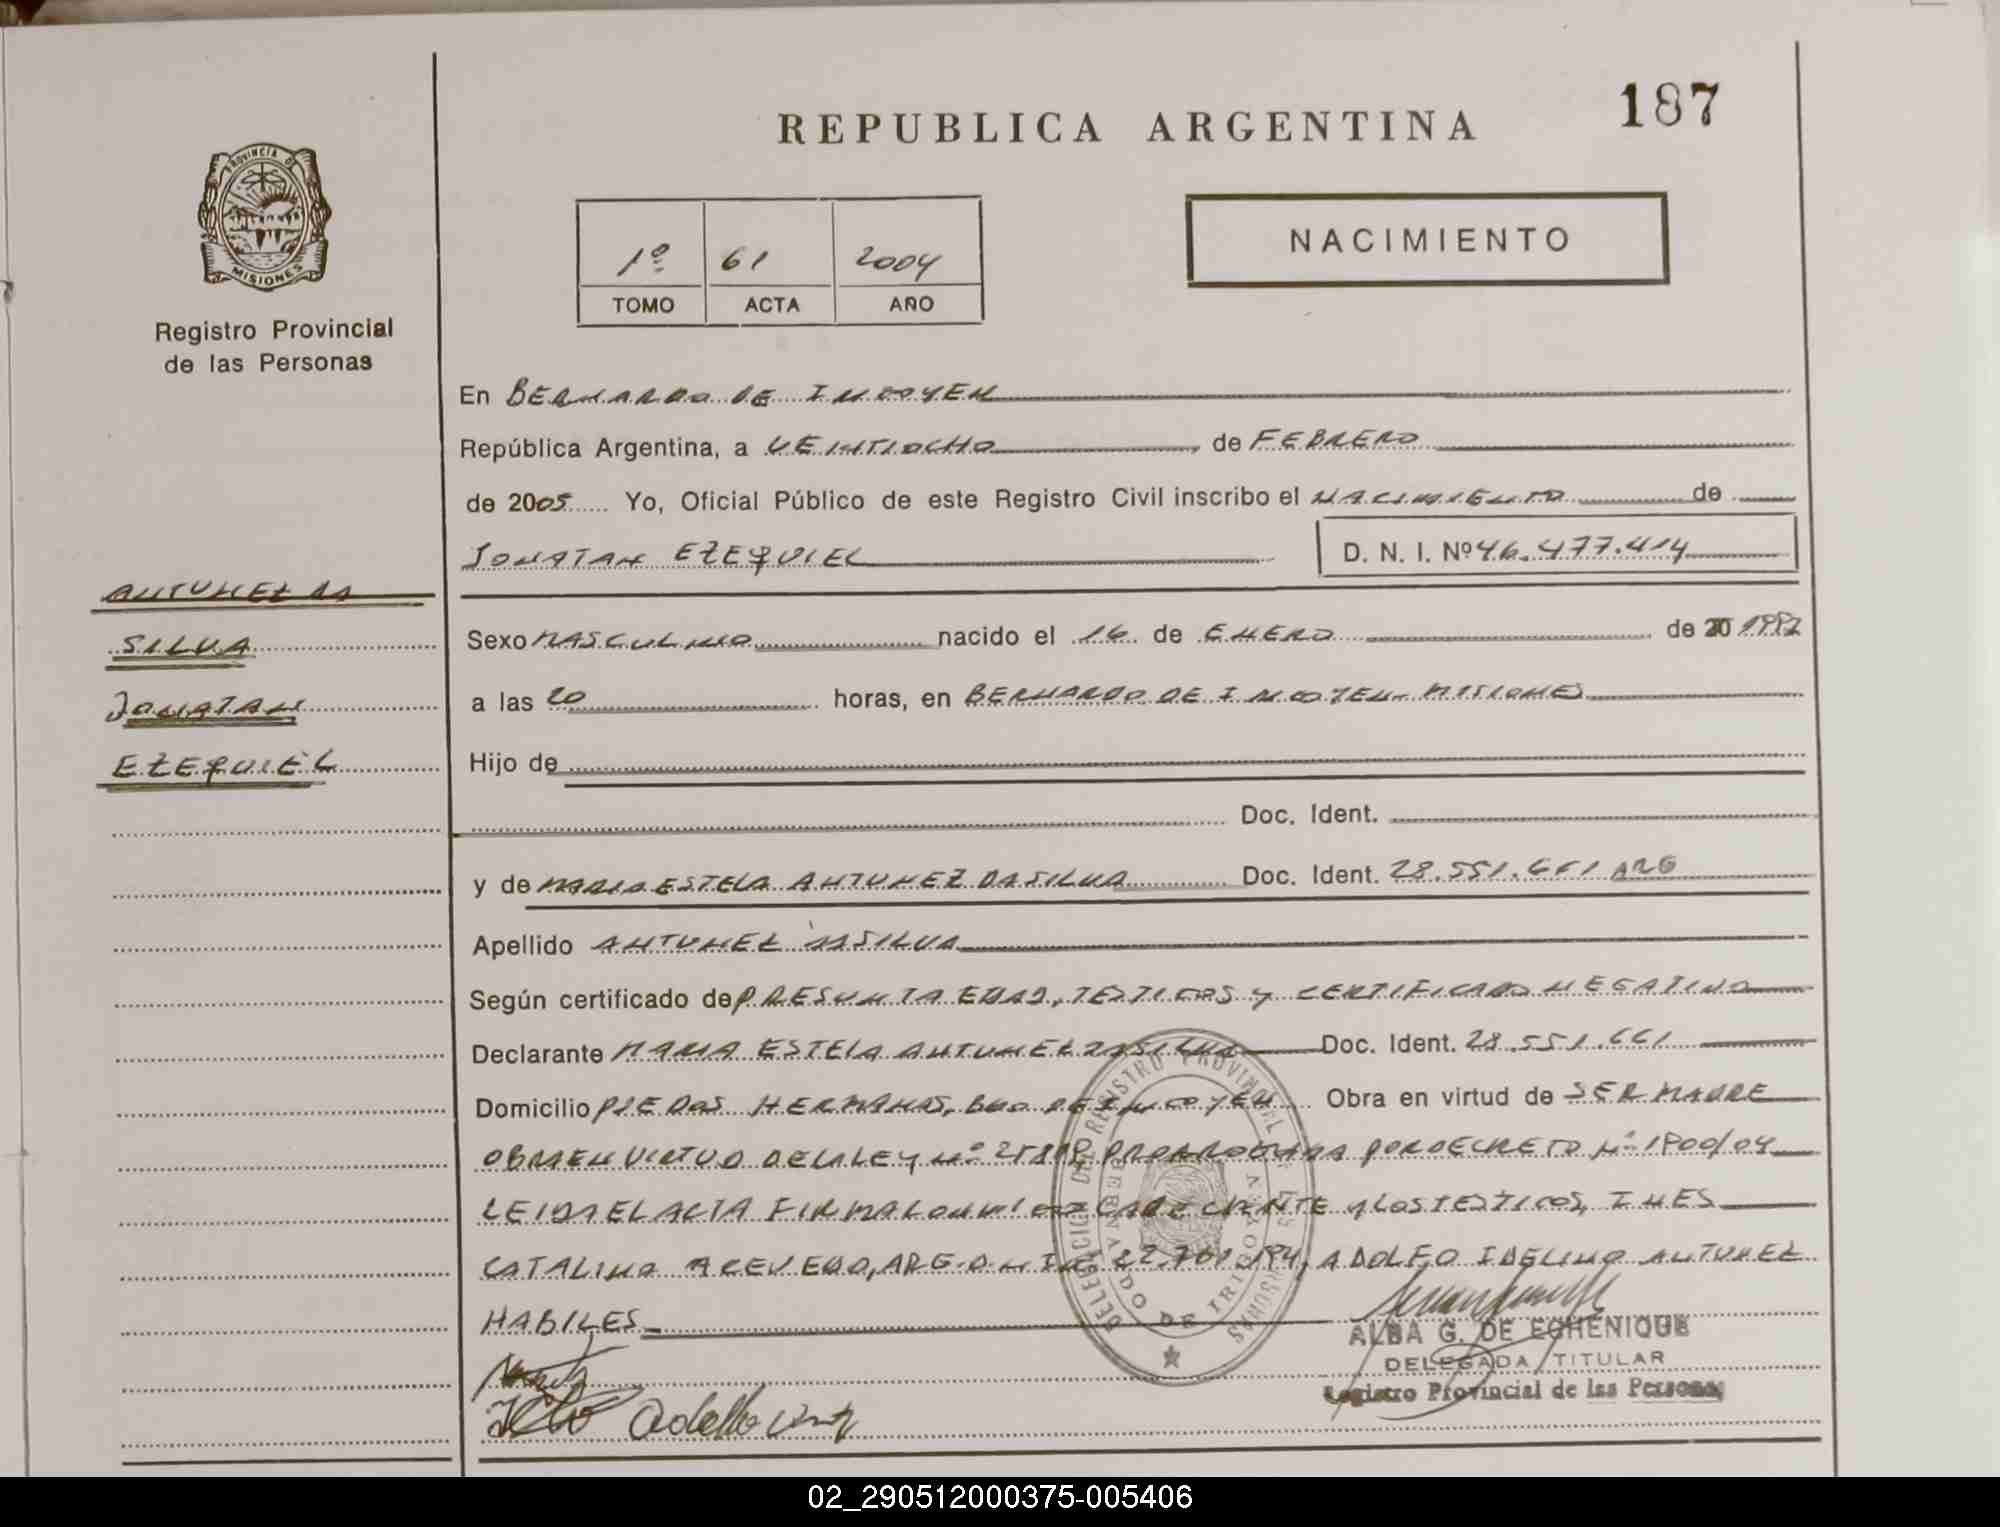 REPUBLICA ARGENTINA
187
PROVINCIA DE
MISIONES
Registro Provincial
de las Personas
1º 61 2004
TOMO ACTA AÑO
NACIMIENTO
En BERNARDO DE IRIGOYEN
República Argentina, a VEINTIOCHO de FEBRERO
de 2005 Yo, Oficial Público de este Registro Civil inscribo el NACIMIENTO de
JONATAN EZEQUIEL D. N. I. Nº 46.477.414
ANTUNEZ DA
SILVA
JONATAN
EZEQUIEL
Sexo MASCULINO nacido el 16 de ENERO de 20 1992
a las 20 horas, en BERNARDO DE IRIGOYEN - MISIONES
Hijo de
Doc. Ident.
y de MARIA ESTELA ANTUNEZ DA SILVA Doc. Ident. 28.551.661 ARG
Apellido ANTUNEZ DA SILVA
Según certificado de PRESUNTA EDAD, TESTIGOS y CERTIFICADO NEGATIVO
Declarante MARIA ESTELA ANTUNEZ DA SILVA Doc. Ident. 28.551.661
Domicilio PJE DOS HERMANAS, BDO DE IRIGOYEN Obra en virtud de SER MADRE
OBRA EN VIRTUD DE LA LEY Nº 25819 PRORROGADA POR DECRETO Nº 1800/04
LEIDA EL ACTA FIRMA CONMIGO LA DECLARANTE Y LOS TESTIGOS, INES
CATALINA ACEVEDO, ARG. D.N.I. ADOLFO IDELINO ANTUNEZ
HABILES
DELEGACION DEL REGISTRO PROVINCIAL DE LAS PERSONAS
BERNARDO DE IRIGOYEN
ALBA G. DE ECHENIQUE
DELEGADA TITULAR
Registro Provincial de las Personas
02_290512000375-005406